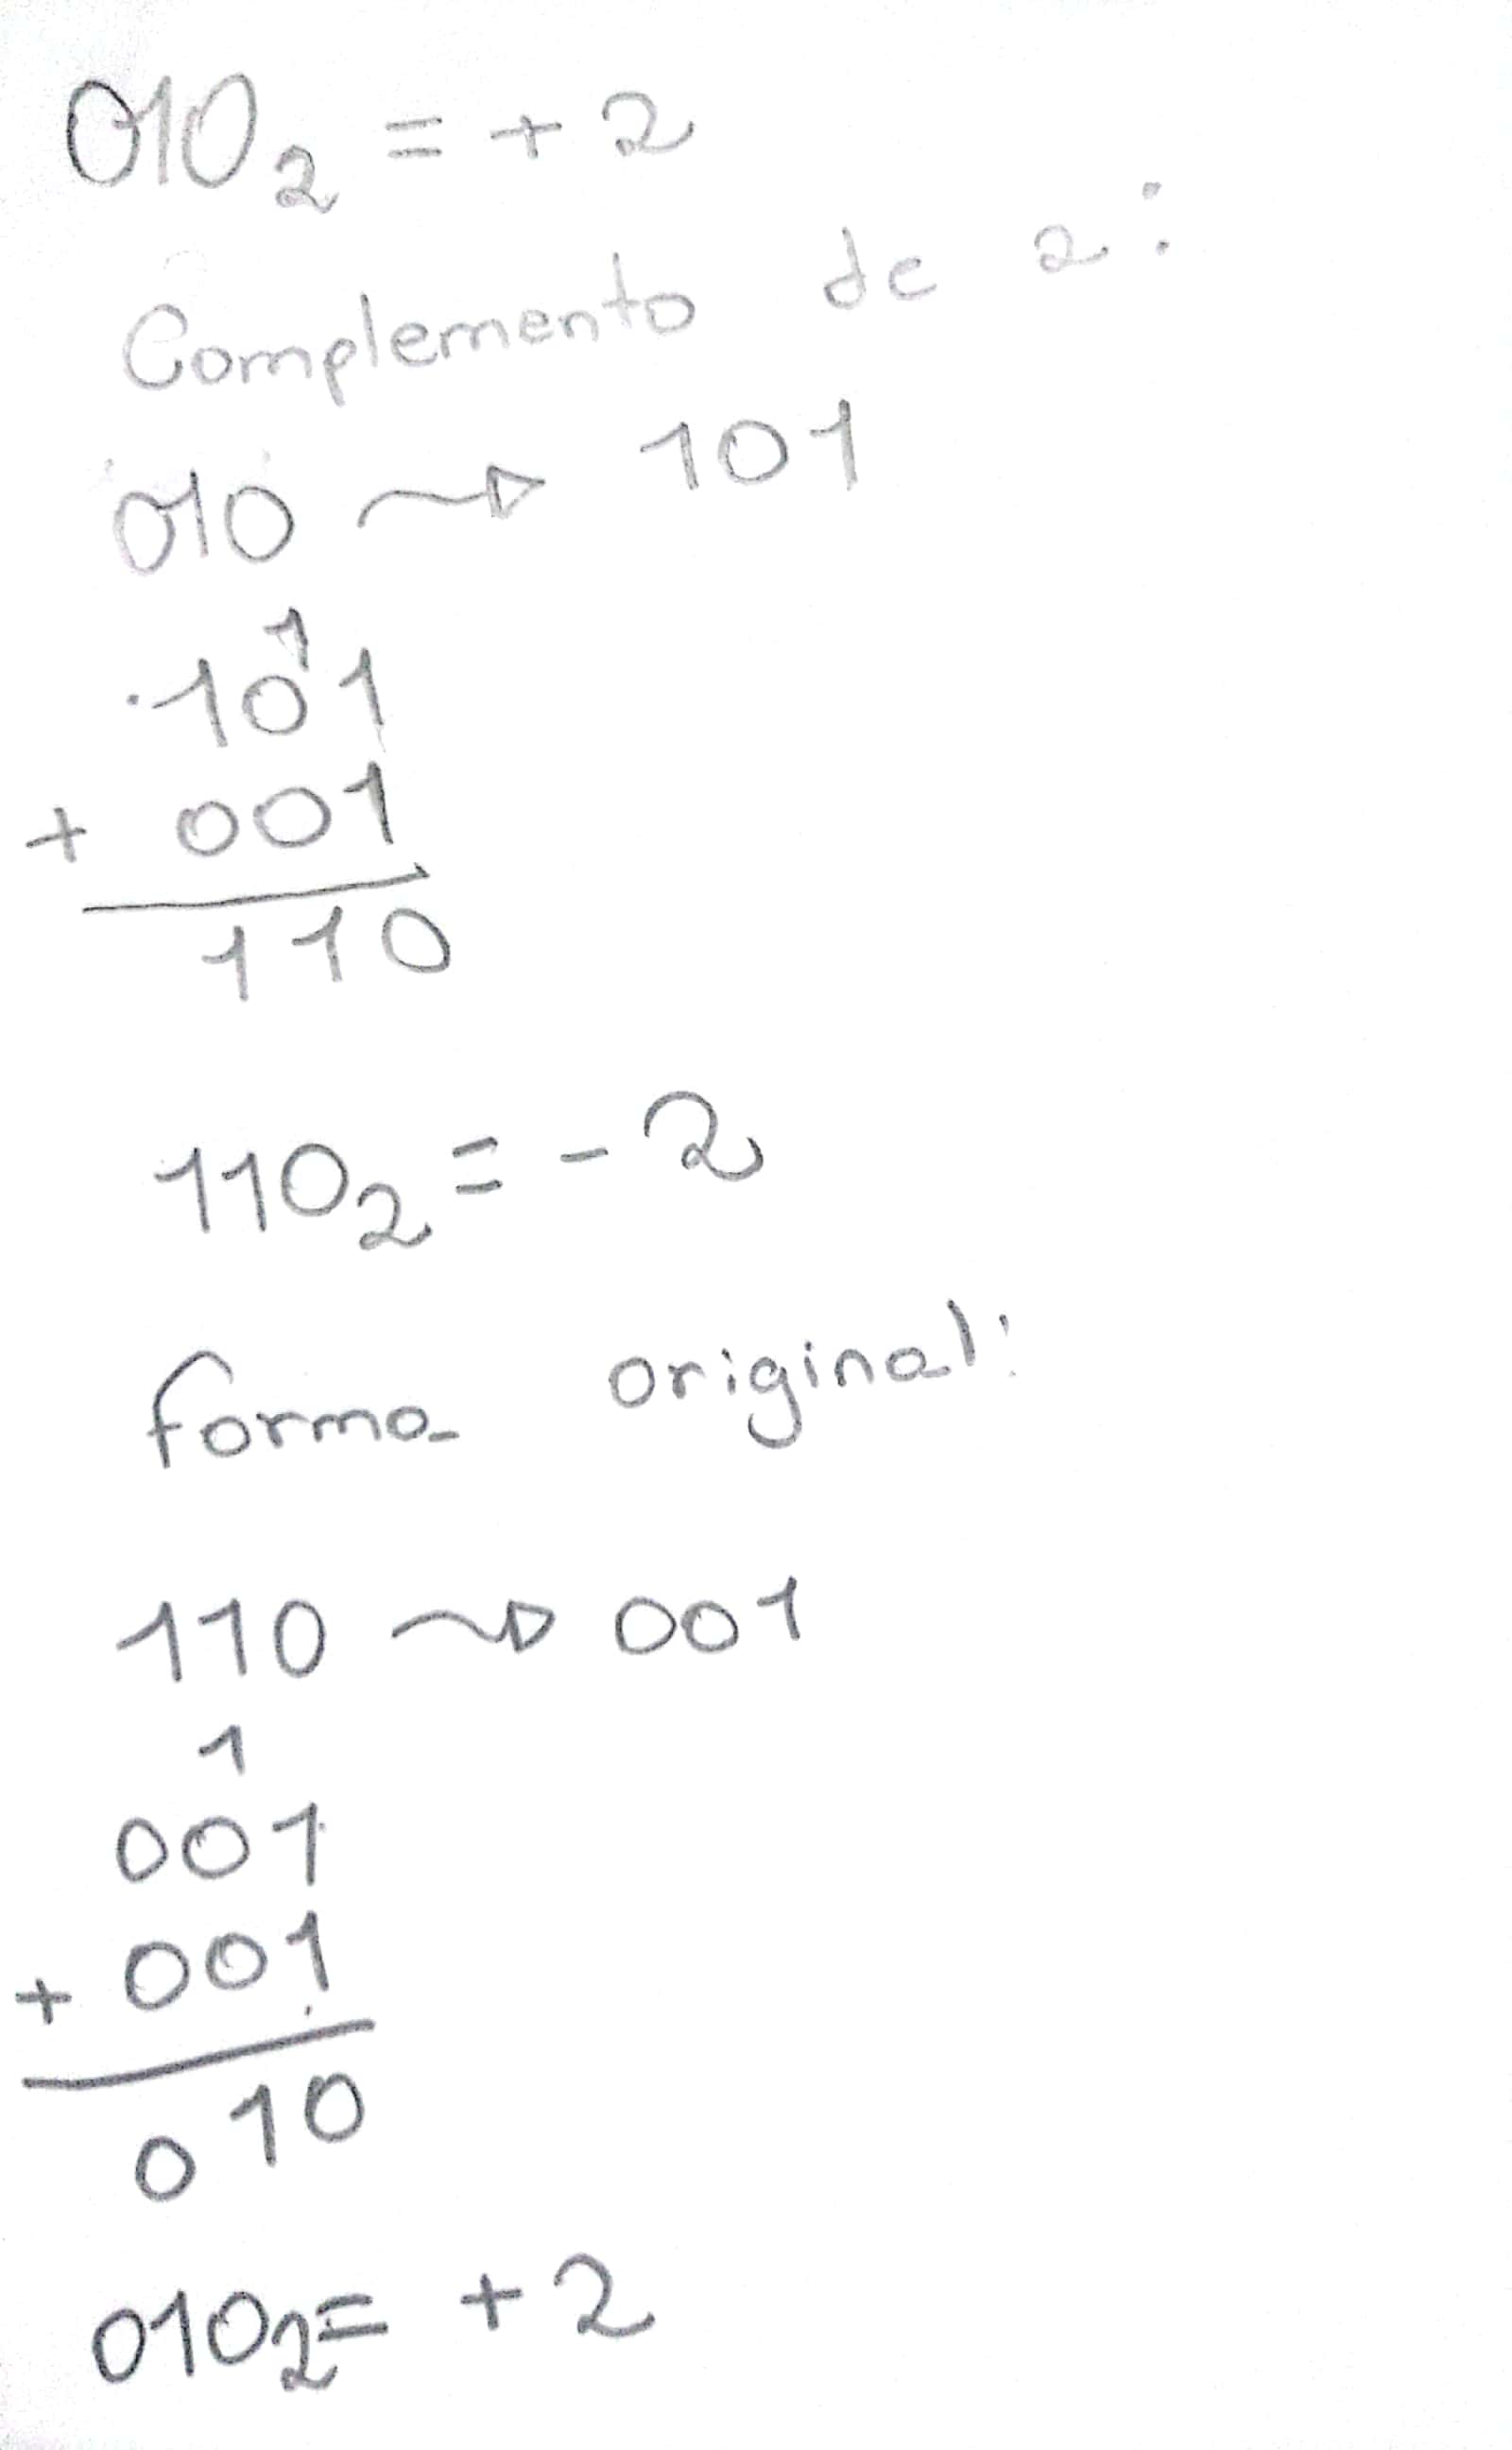 010₂ = + 2
Complemento de 2:
010 ~> 101
1
101
+ 001
110
110₂ = - 2
forma original:
110 ~> 001
1
001
+ 001
010
010₂ = + 2